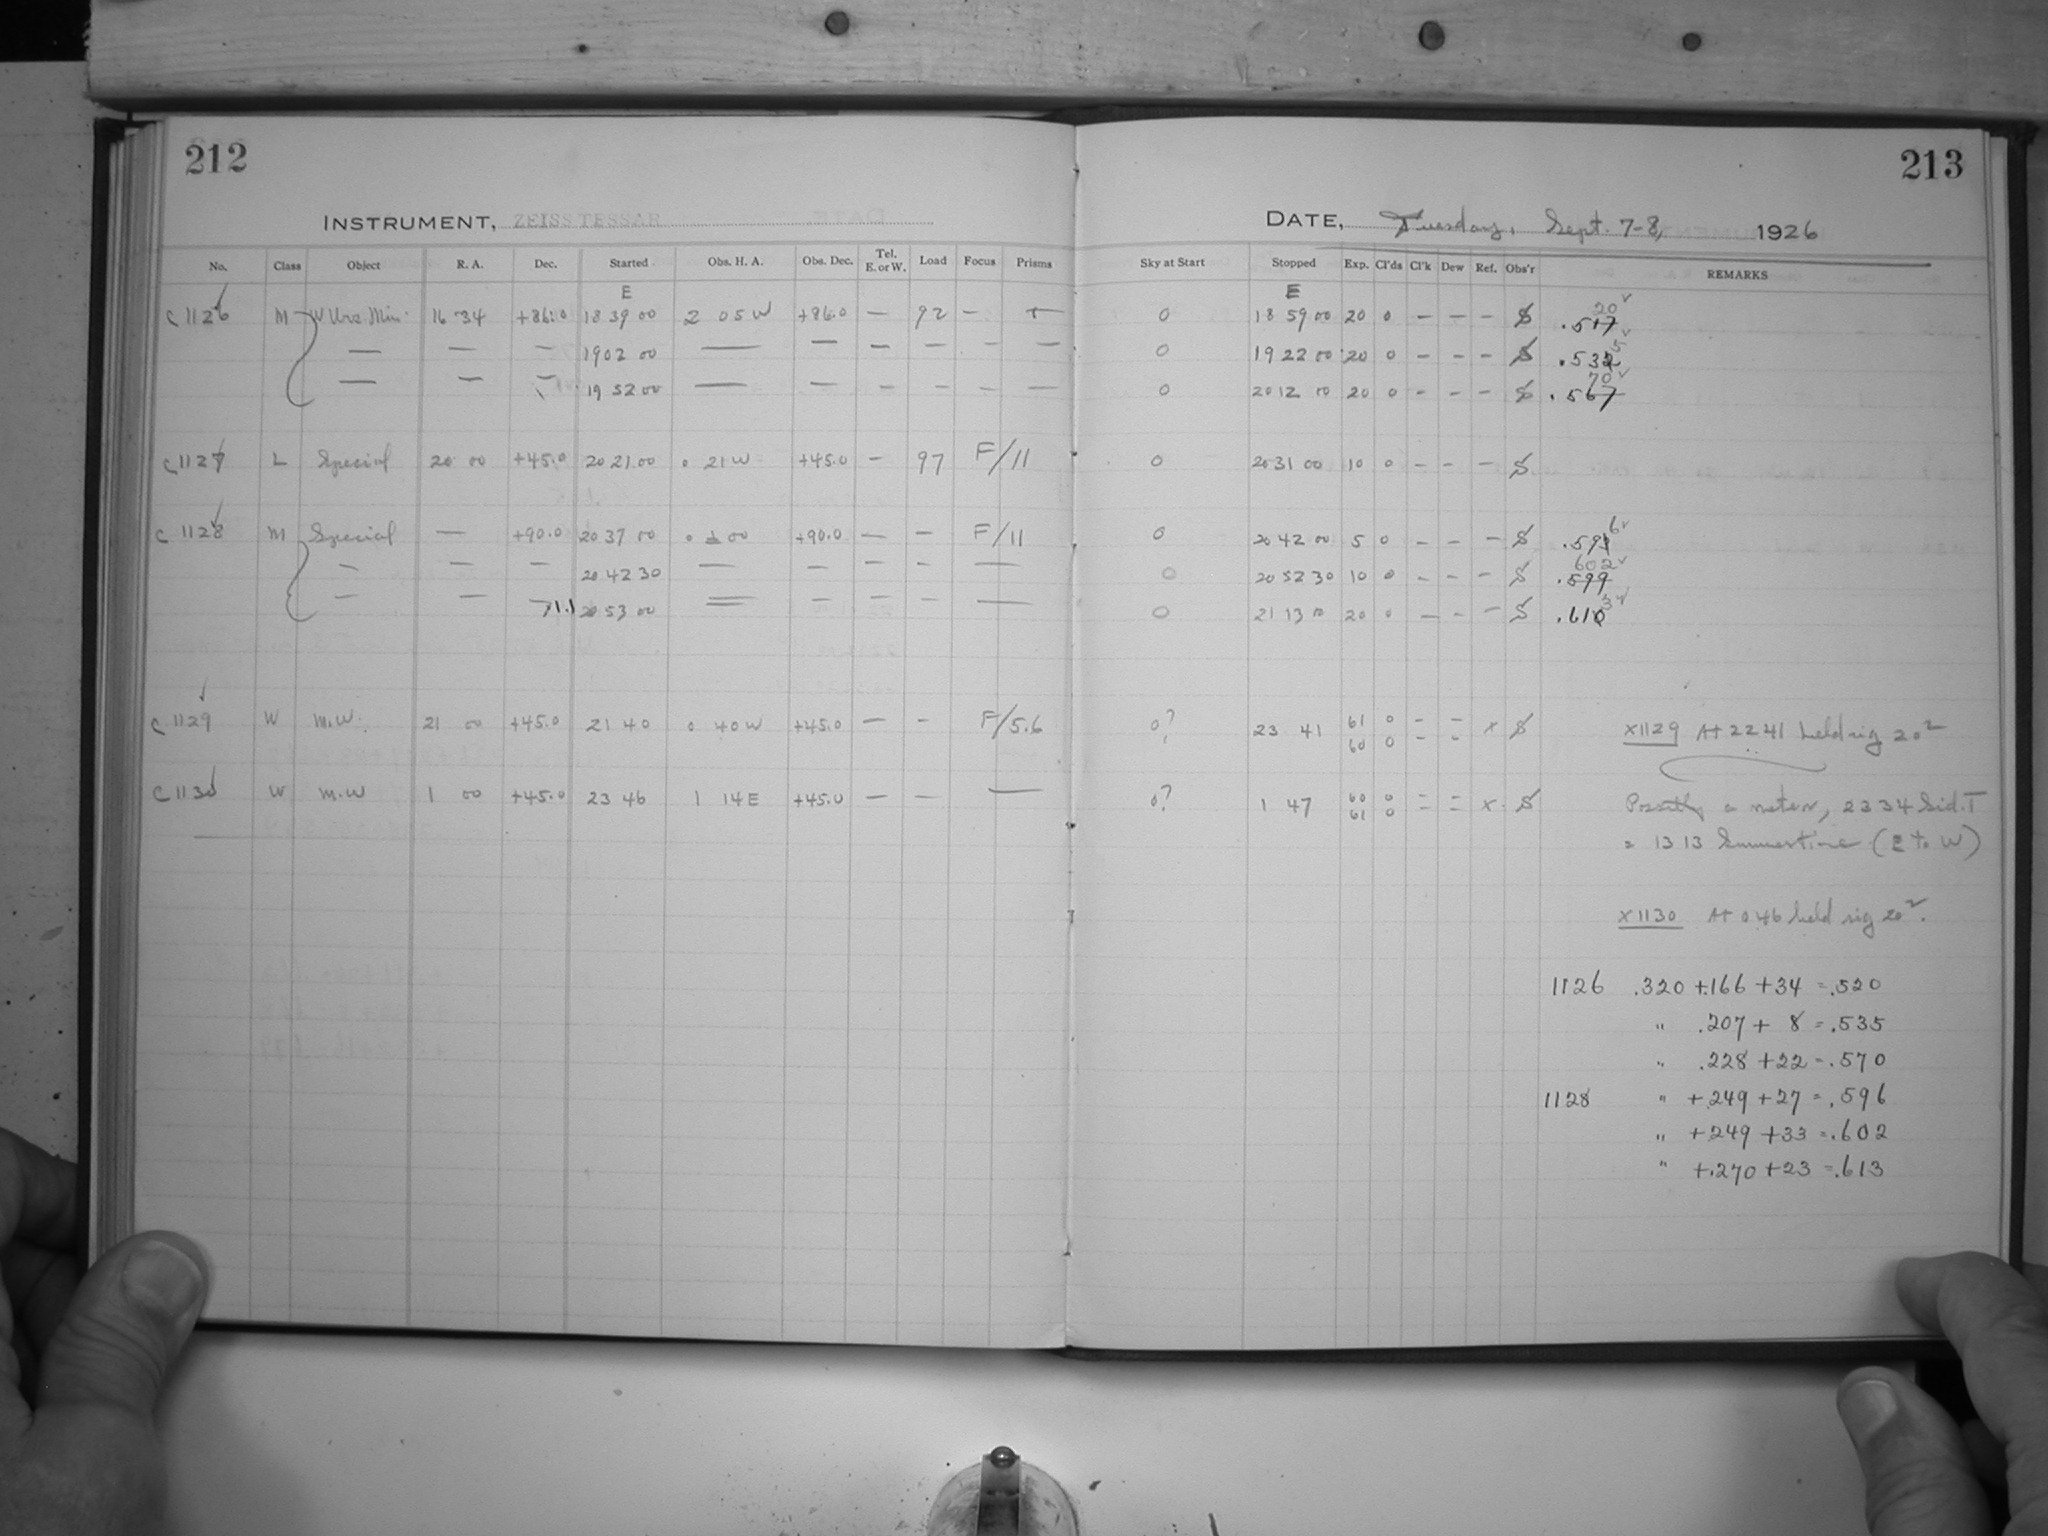 212
INSTRUMENT, ZEISS TESSAR
No. Class Object R. A. Dec. Started Obs. H. A. Obs. Dec. Tel. E. or W. Load Focus Prisms
E
C 1126 M W Urs. Min. 16 34 +86.0 18 39 00 2 05 W +86.0 — 92 — —
— — — 19 02 00 — — — — — —
— — — 19 52 00 — — — — — —
C 1127 L Special 20 00 +45.0 20 21 00 0 21 W +45.0 — 97 F/11
C 1128 M Special — +90.0 20 37 00 0 00 +90.0 — — F/11
— — — 20 42 30 — — — — —
— — 71.1 20 53 00 — — — — —
C 1129 W M.W. 21 00 +45.0 21 40 0 40 W +45.0 — — F/5.6
C 1130 W M.W 1 00 +45.0 23 46 1 14 E +45.0 — — —
213
DATE, Tuesday, Sept. 7-8, 1926
Sky at Start Stopped Exp. Cl'ds Cl'k Dew Ref. Obs'r REMARKS
E
0 18 59 00 20 0 — — — S .517 20 ✓
0 19 22 00 20 0 — — — S .532 5 ✓
0 20 12 00 20 0 — — — S .567 70 ✓
0 20 31 00 10 0 — — — S
0 20 42 00 5 0 — — — S .593 6 ✓
0 20 52 30 10 0 — — — S .599 602 ✓
0 21 13 00 20 0 — — — S .610 3 ✓
0? 23 41 61 0 — — x S X1129 At 22 41 held rig 20²
60 0 — —
0? 1 47 60 0 — — x S Possibly a meteor, 23 34 Sid. T
61 0 — —
= 13 13 Summertime (E to W)
X1130 At 0 46 held rig 20².
1126 .320 +.166 +34 = .520
" .207 + 8 = .535
" .228 +22 = .570
1128 " +.249 +27 = .596
" +.249 +33 = .602
" +.270 +23 = .613